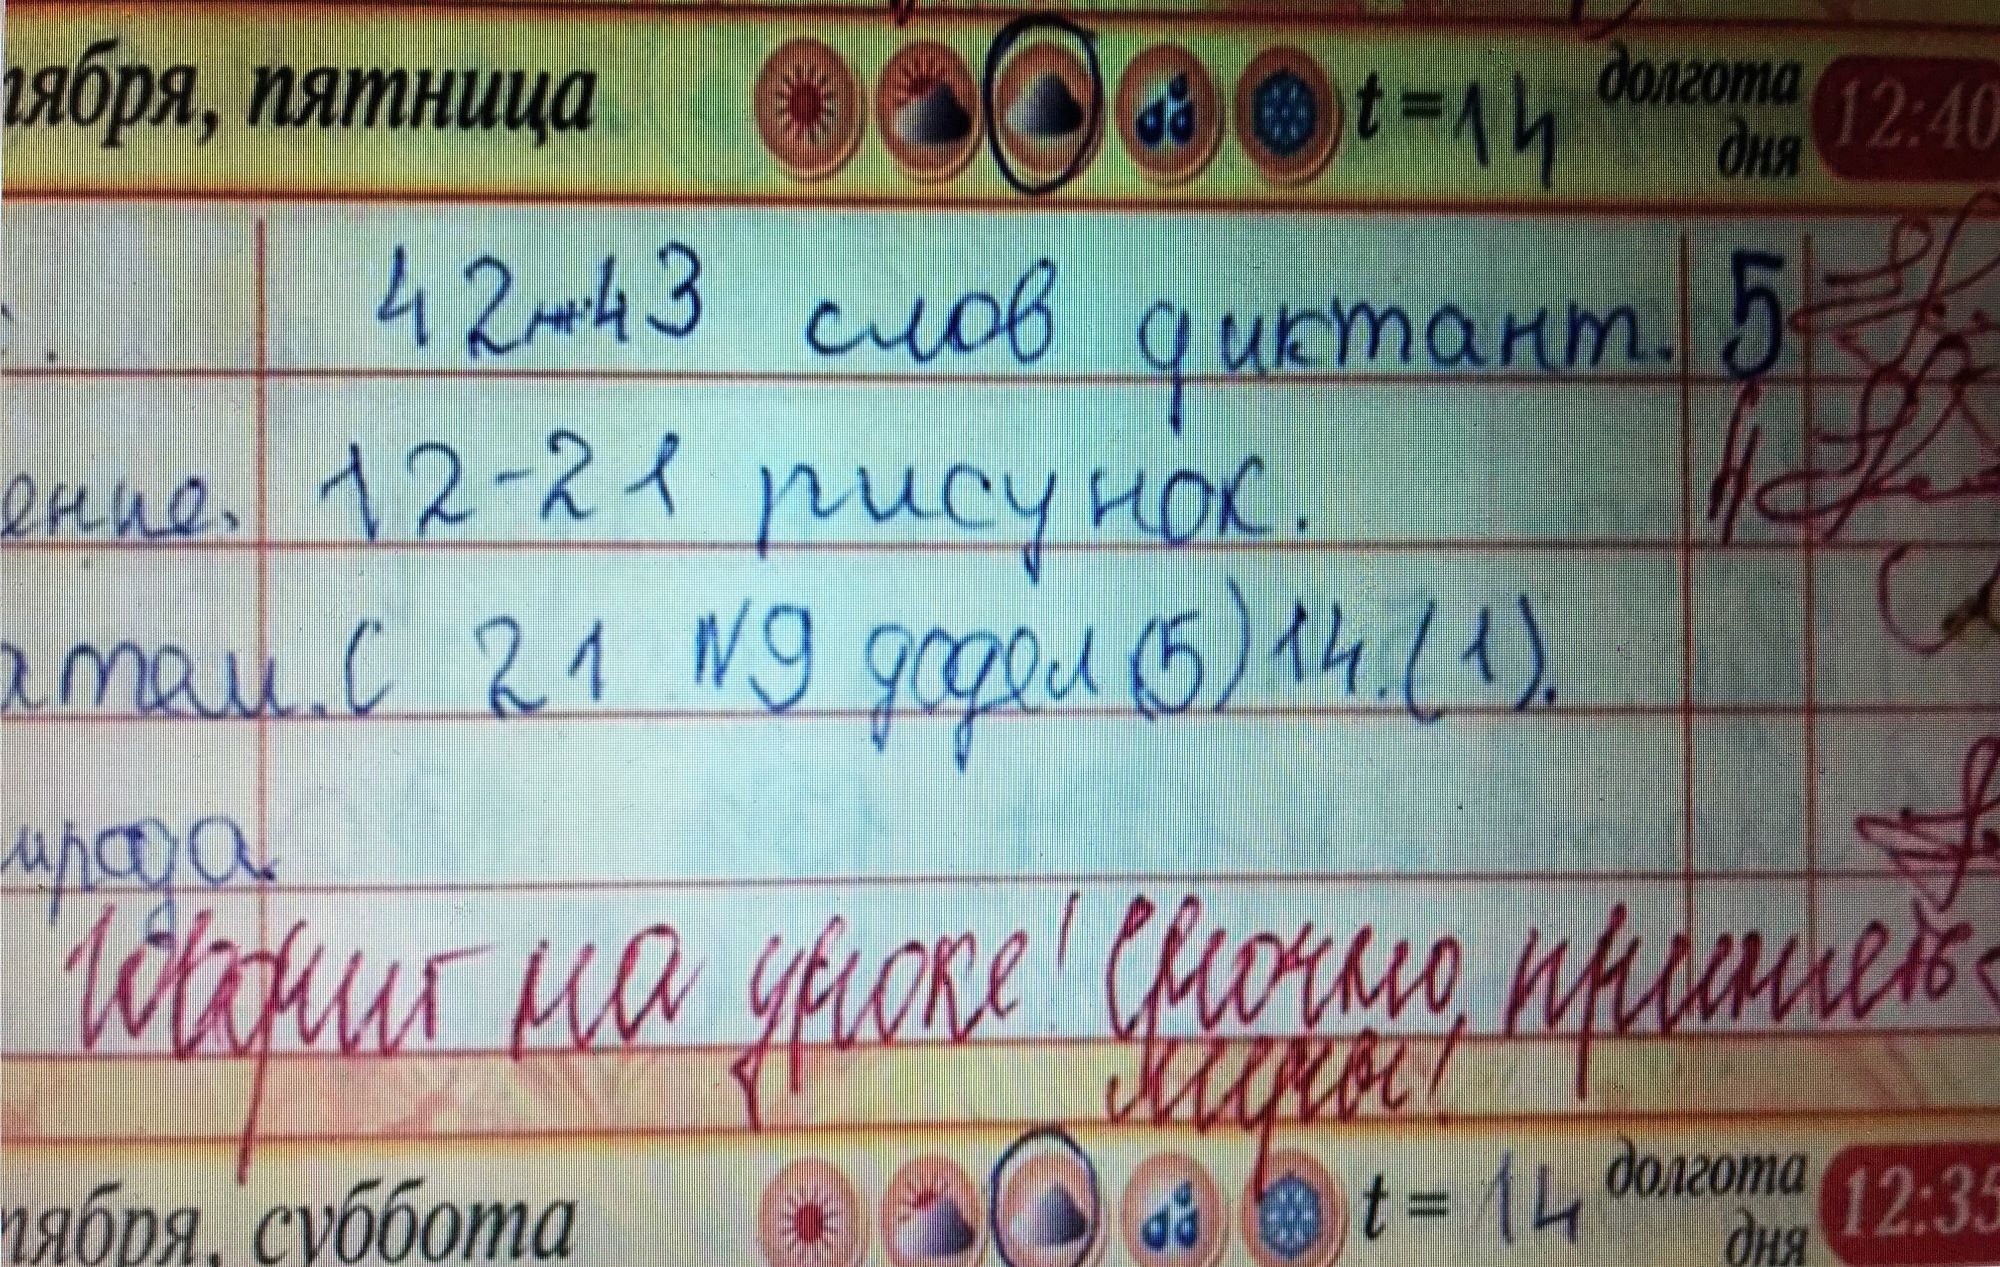 тября, пятница t = 14 долгота дня 12:40
42-43 слов диктант. 5
ение. 12-21 рисунок.
атем. С 21 №9 додел (5) 14. (1).
ирода.
на уроке! Срочно, примите
меры!
тября, суббота t = 14 долгота дня 12:35